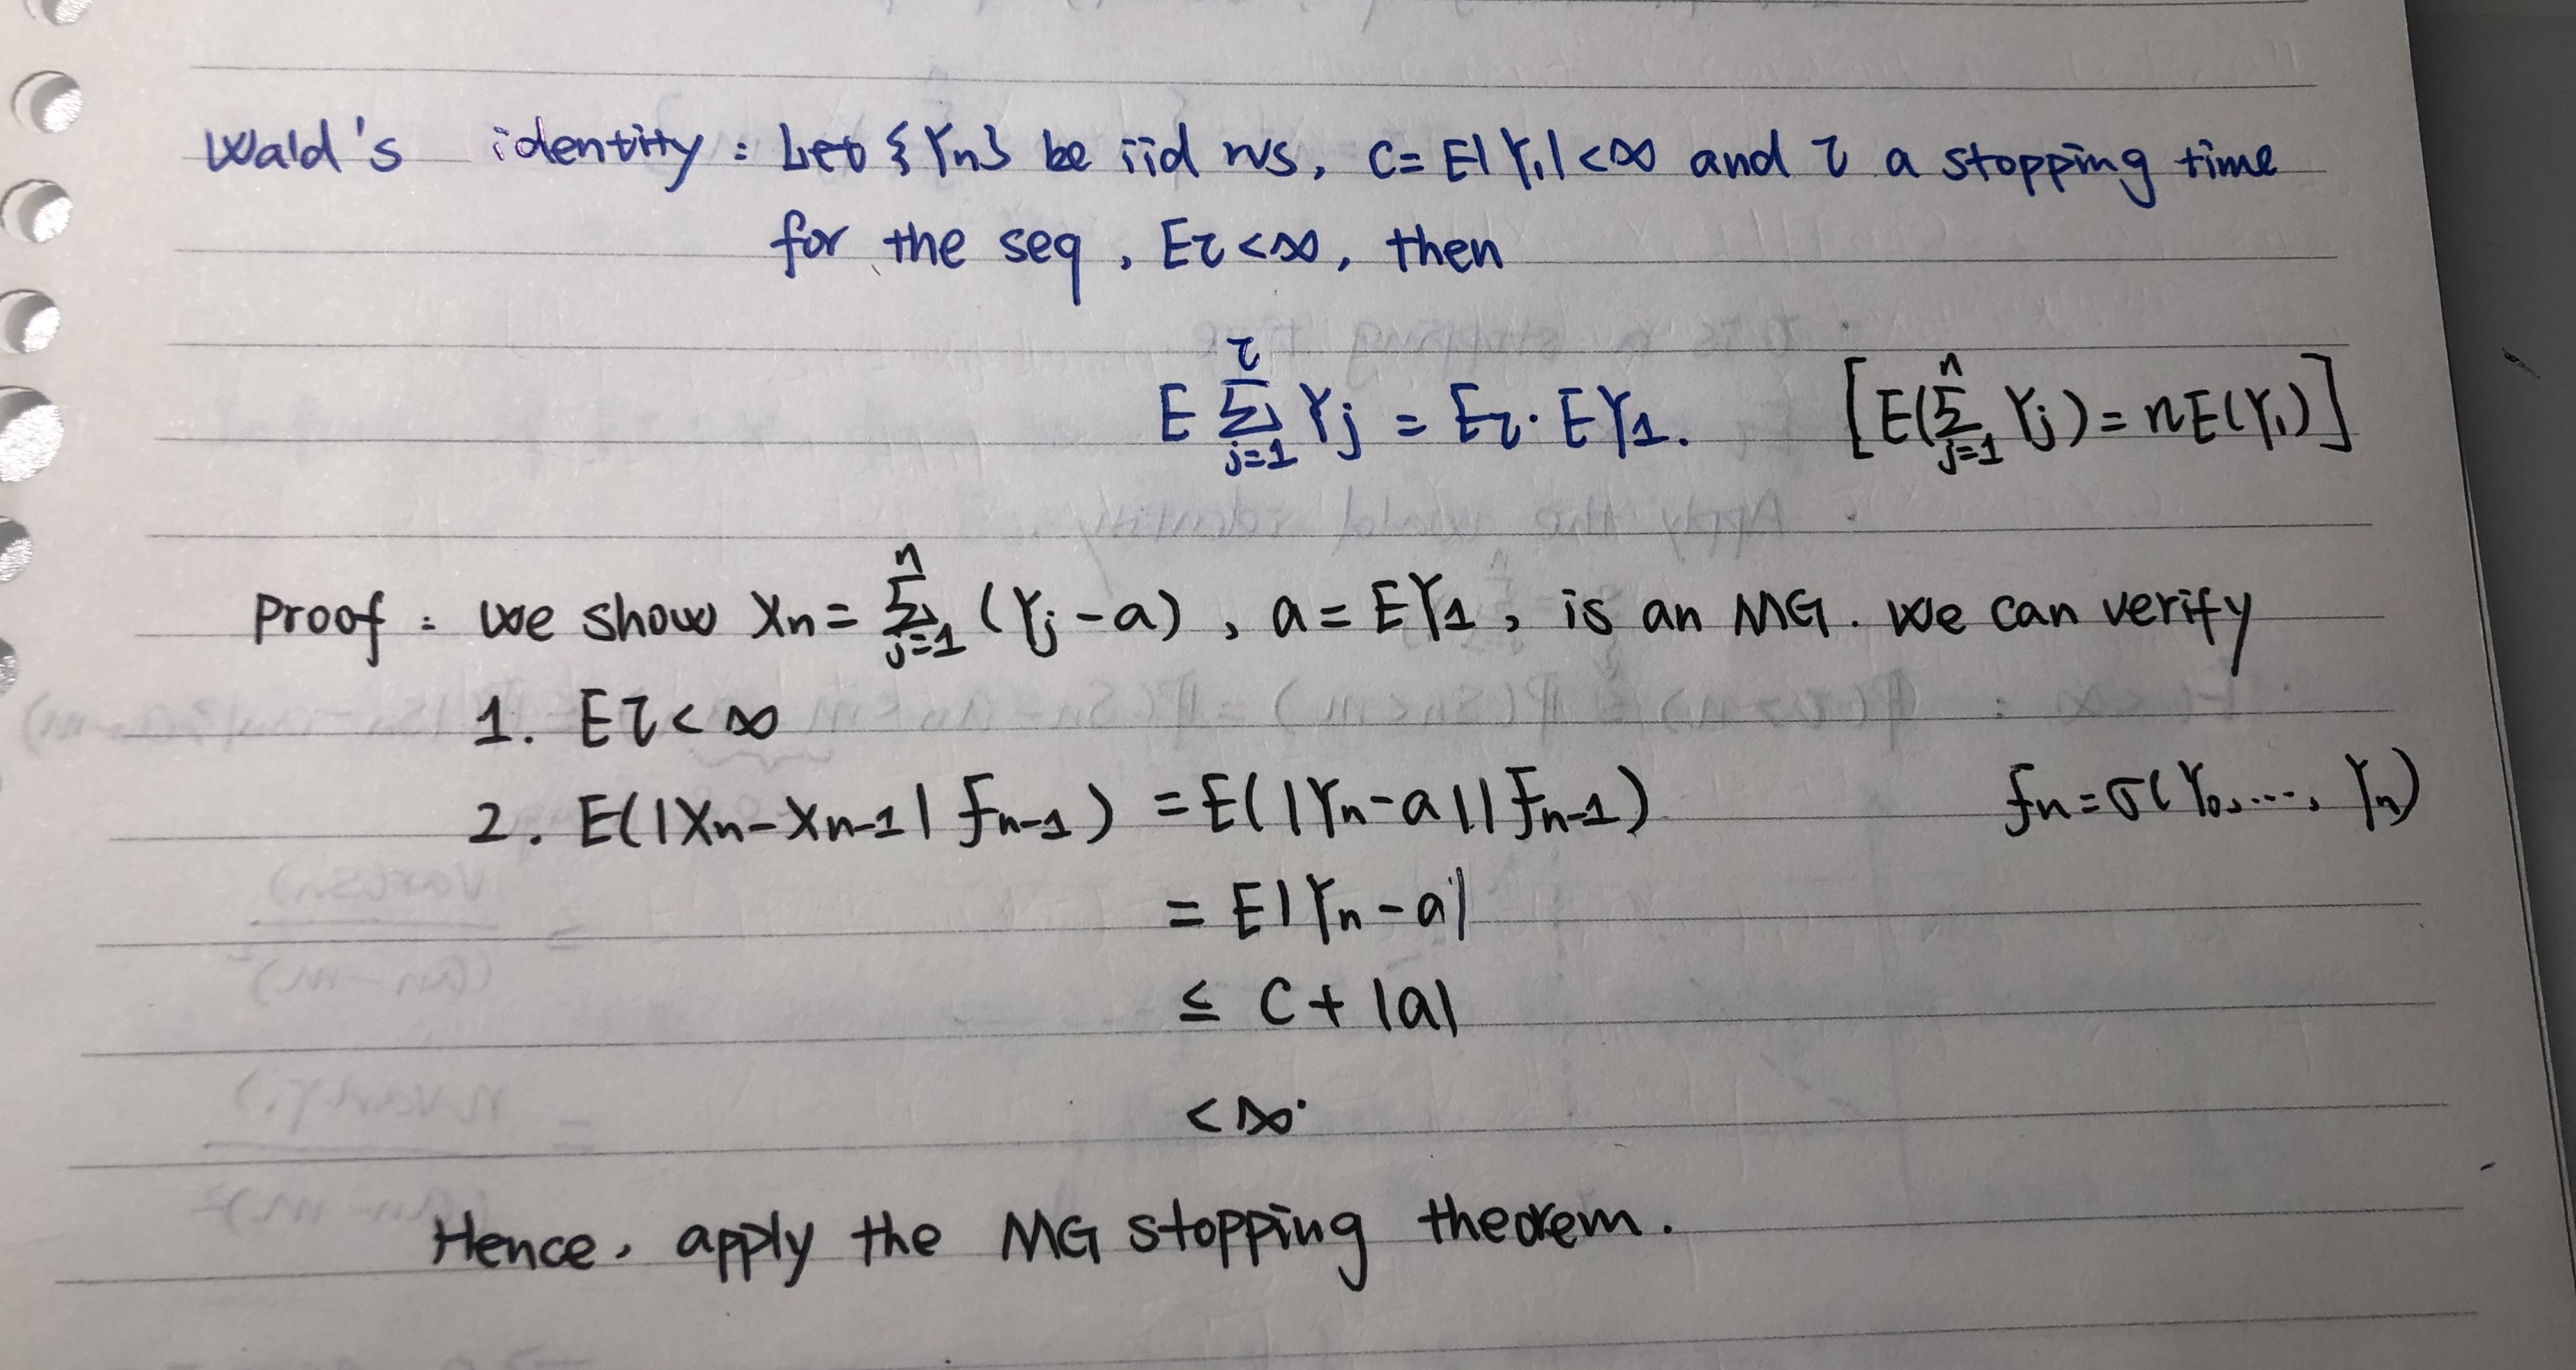 Wald's identity : Let {Yn} be iid rvs, C = E|Y1| < ∞ and τ a stopping time
for the seq, Eτ < ∞, then
E ∑_{j=1}^{τ} Yj = Eτ · EY1. [E(∑_{j=1}^{n} Yj) = nE(Y1)]
Proof : we show Xn = ∑_{j=1}^{n} (Yj - a), a = EY1, is an MG. We can verify
1. Eτ < ∞
2. E(|Xn - Xn-1| Fn-1) = E(|Yn - a||Fn-1) fn = σ(Y0, ..., Yn)
= E|Yn - a|
≤ C + |a|
< ∞.
Hence, apply the MG stopping theorem.